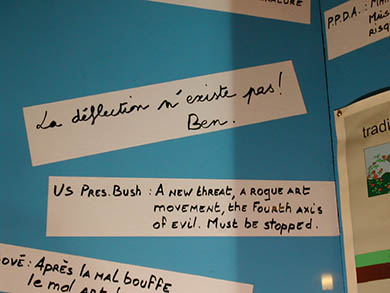 P.P.D.A. : MAIN
La déflection n'existe pas!
Ben.
tradi
US PRES. BUSH : A NEW THREAT, A ROGUE ART
MOVEMENT, THE FOURTH AXIS
OF EVIL. MUST BE STOPPED.
OVÉ : APRÈS LA MAL BOUFFE
le mol art